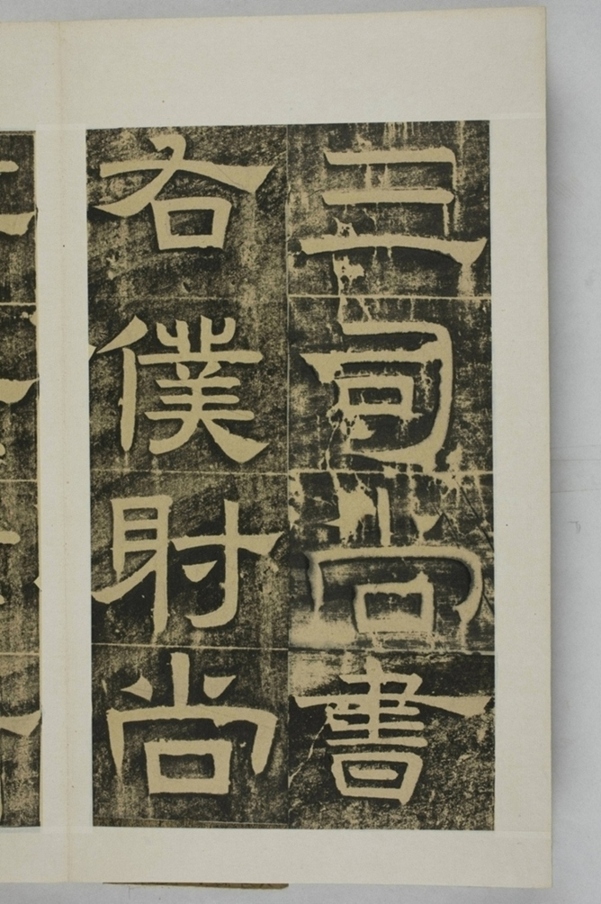 三司尚書
右僕射尚